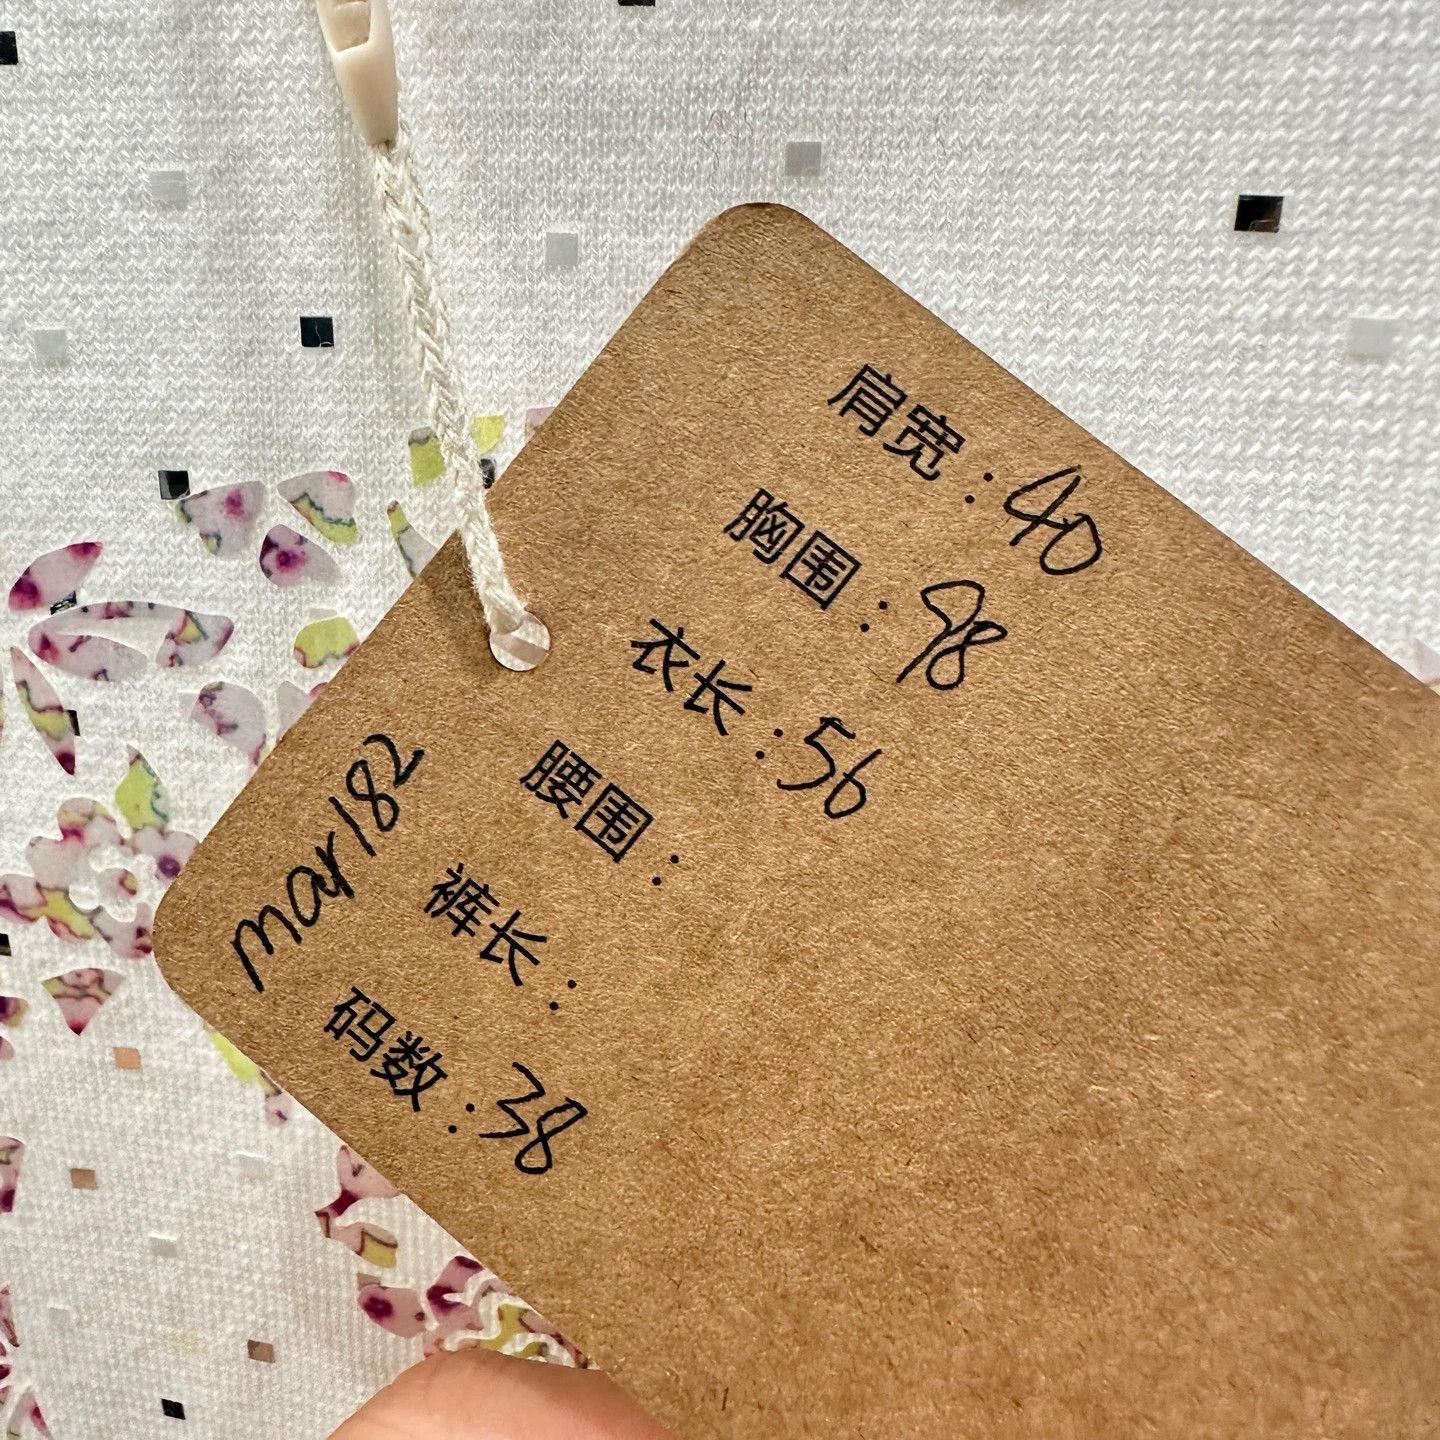 肩宽：40
胸围：98
衣长：56
腰围：
裤长：
码数：38
mar182